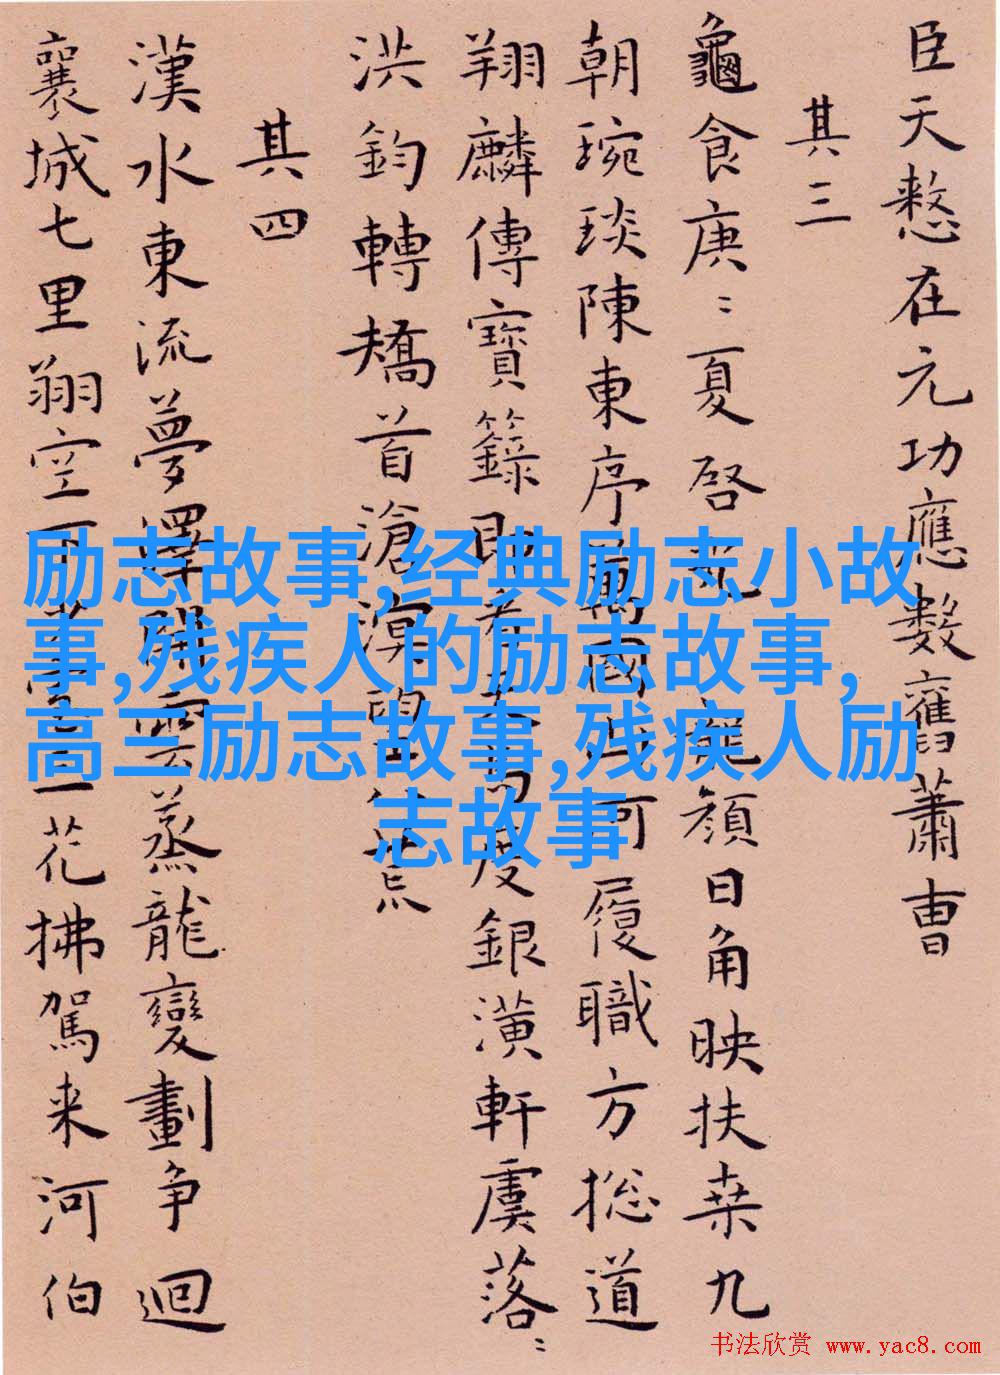 臣天愁在元功應數舊蕭曹
其三
龜食庚〻夏啓龍顏日角映扶桒九
朝琬琰陳東序萬國山河履職方揔道
翔麟傳寶籙即度銀潢軒虞落〻
洪鈞轉矯首滄溟望荒
其四
漢水東流夢澤開雲蒸龍變劃争迴
襄城七里翔空下花拂駕来河伯
励志故事,经典励志小故
事,残疾人的励志故事,
高三励志故事,残疾人励
志故事
书法欣赏 www.yac8.com